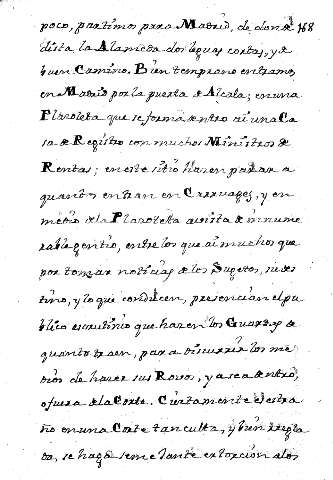 poco, partimos para Madrid, de donde 168
dista la Alameda dos leguas cortas, y de
buen Camino. Bien temprano entramos
en Madrid por la puerta de Alcala; en una
Plazoleta que se forma dentro ai una Ca
sa de Registro con muchos Ministros de
Rentas; en este sitio hacen parar a
quantos entran en Carruages, y en
medio de la Plazoletta a vista de innume
rable gentio, entre los que ai muchos que
por tomar noticias de los Sugetos, su des
tino, y lo que conducen, presencian el pu
blico escrutinio que hazen los Guardas de
quanto traen, para discurrir los me
dios de hacer sus Robos, ya sea dentro,
o fuera de la Corte. Ciertamente es estra
ño en una Corte tan culta, y bien arregla
da, se haga semejante extorcion a los